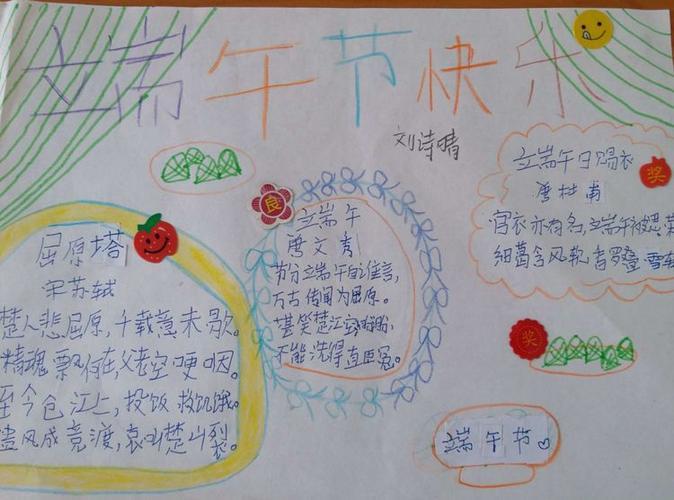 端午节快乐
刘诗晴
屈原塔
宋苏轼
楚人悲屈原,千载意未歇。
精魂飘何在,父老空哽咽。
至今仓江上,投饭救饥渴。
遗风成竞渡,哀叫楚山裂。
良
端午
唐文秀
节分端午自谁言,
万古传闻为屈原。
堪笑楚江空渺渺,
不能洗得直臣冤。
端午日赐衣
唐杜甫
奖
宫衣亦有名,端午被恩荣
细葛含风软,香罗叠雪轻
奖
端午节